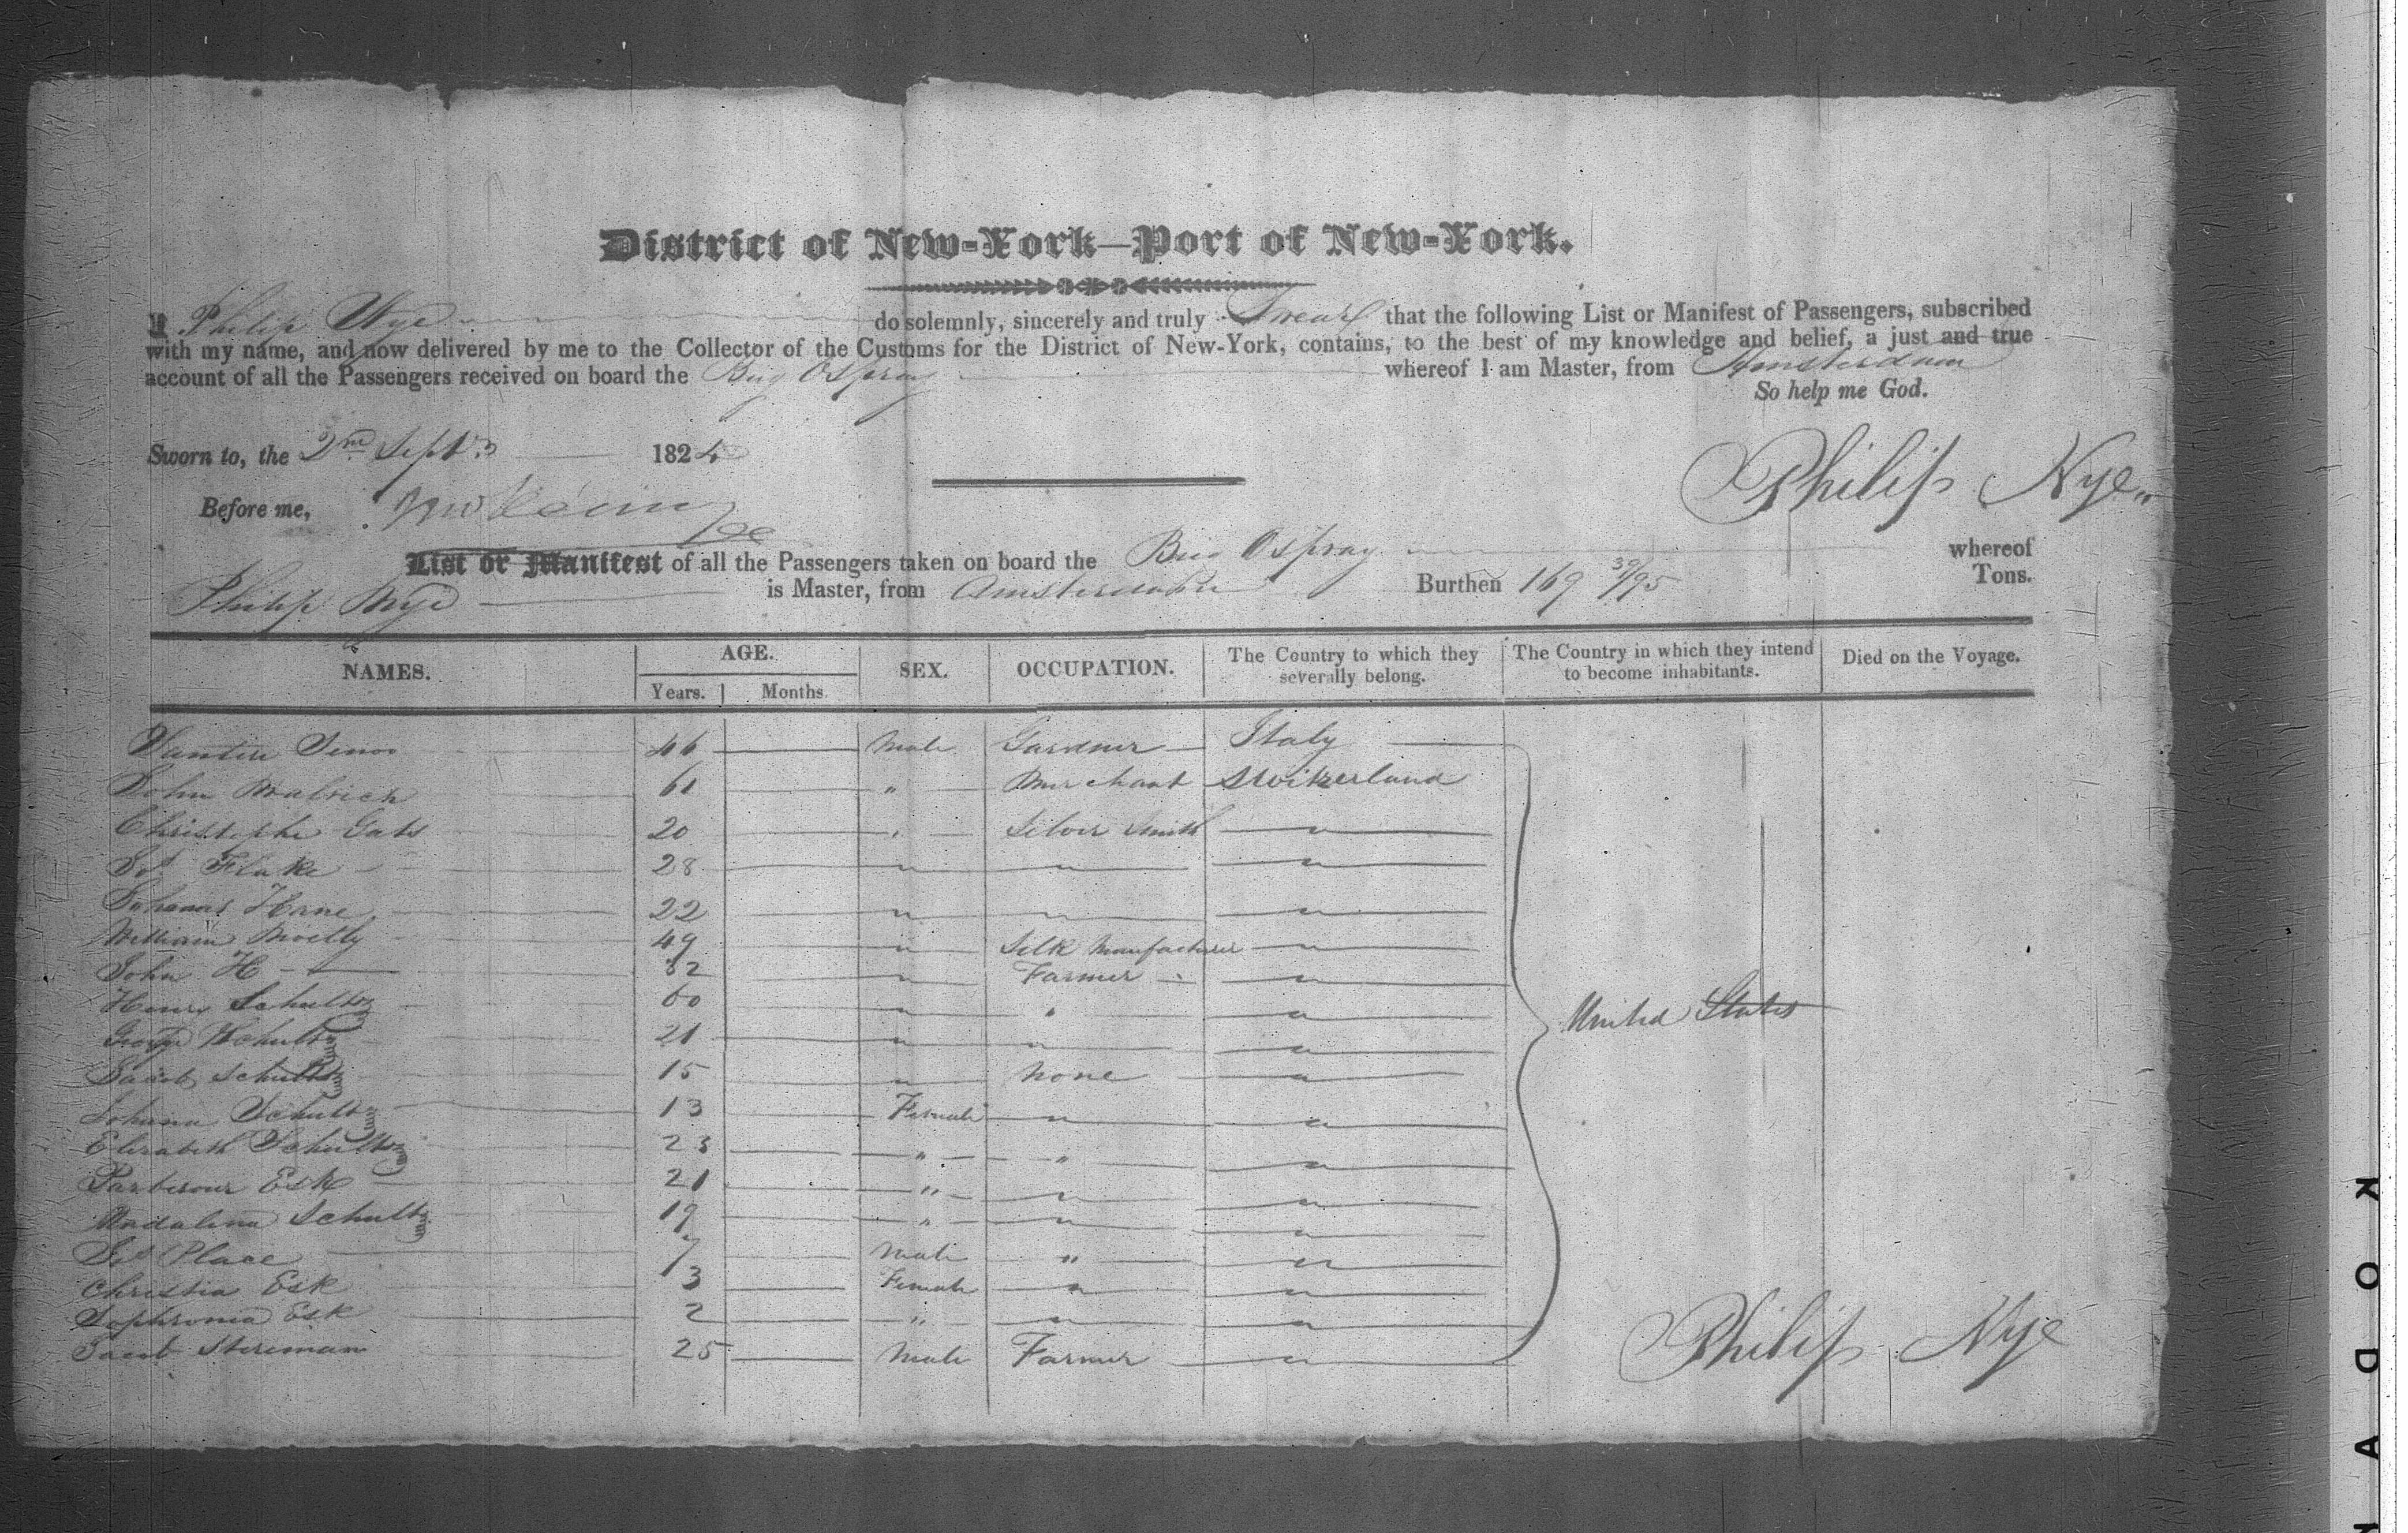 District of New-York—Port of New-York.
I Philip Nye do solemnly, sincerely and truly Swear that the following List or Manifest of Passengers, subscribed
with my name, and now delivered by me to the Collector of the Customs for the District of New-York, contains, to the best of my knowledge and belief, a just and true
account of all the Passengers received on board the Brig Ospray whereof I am Master, from Amsterdam
So help me God.
Sworn to, the 2nd Septr 1824
Philip Nye
Before me,
List or Manifest of all the Passengers taken on board the Brig Ospray whereof
Philip Nye is Master, from Amsterdam Burthen 169 39/95 Tons.
NAMES. AGE. SEX. OCCUPATION. The Country to which they severally belong. The Country in which they intend to become inhabitants. Died on the Voyage.
Years. Months.
46 Male Gardner Italy
John 61 " Merchant Switzerland
Christophe Gats 20 " Silver Smith "
Jos Fluke 28 " " "
Johannes Hane 22 " " "
William 49 " Silk Manufacturer "
John H 32 " Farmer "
Henry Schultz 60 " " "
George Schultz 21 " " "
United States
Jacob Schultz 15 " None "
Johanna Schultz 13 Female " "
Elizabeth Schultz 23 " " "
Esk 21 " " "
Madalena Schultz 19 " " "
Jos Place 7 Male " "
Christia Esk 3 Female " "
Sophronia Esk 2 " " "
Jacob Stereman 25 Male Farmer "
Philip Nye
KODA